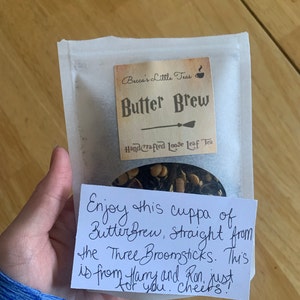 Becca's Little Teas
Butter Brew
Handcrafted Loose Leaf Tea
Enjoy this cuppa of
ButterBrew, straight from
the Three Broomsticks. This
is from Harry and Ron, just
for you. Cheers!